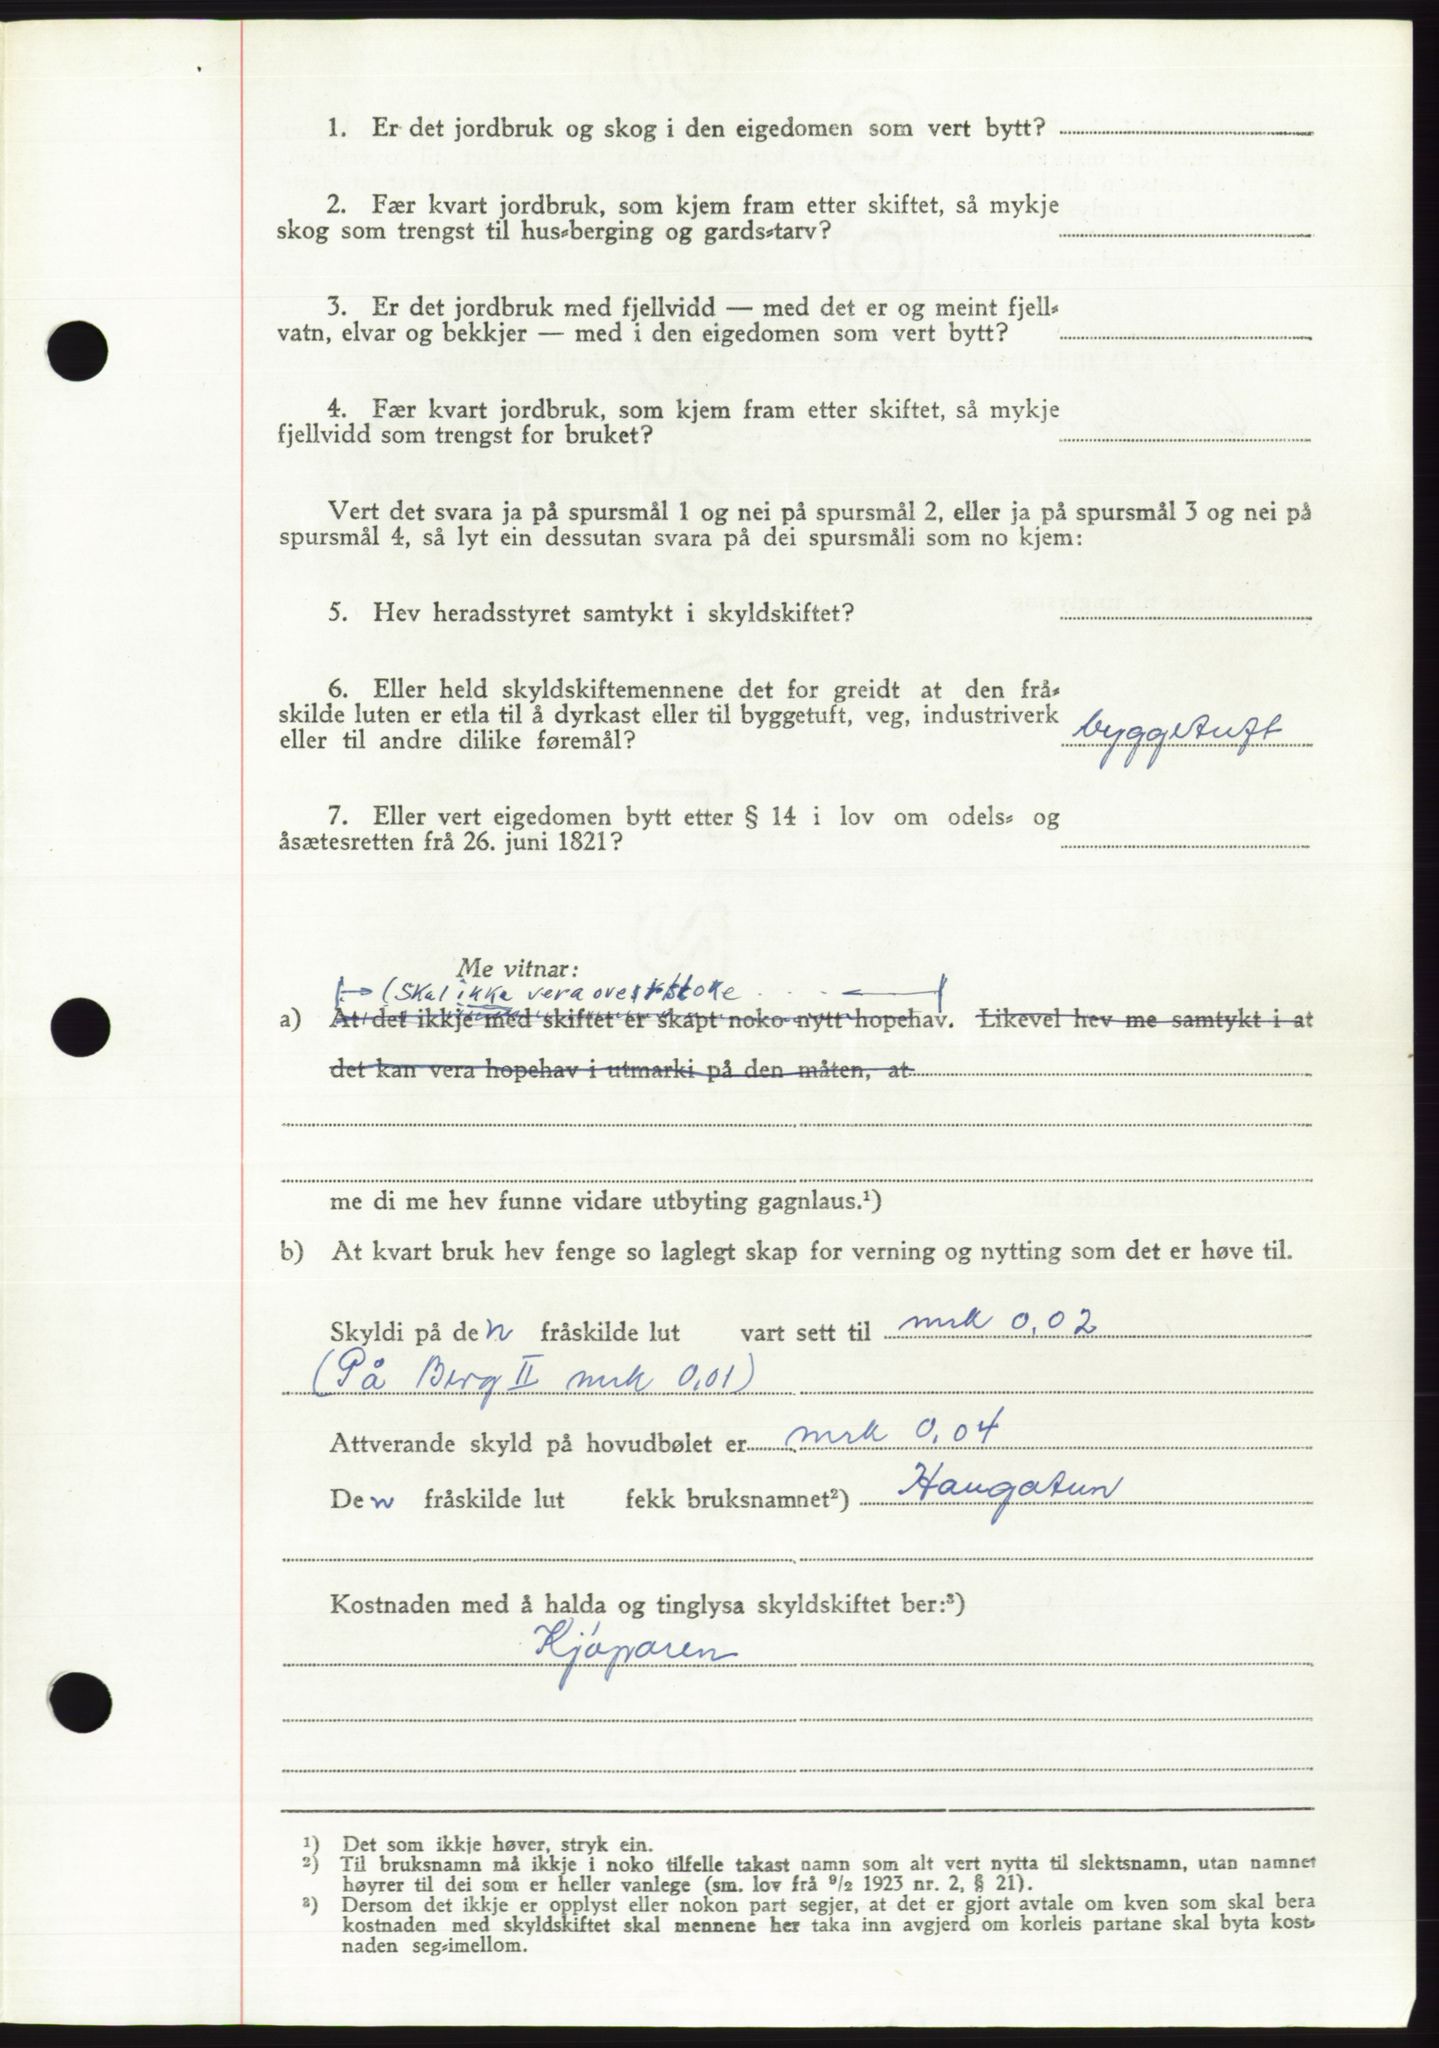 1. Er det jordbruk og skog i den eigedomen som vert bytt?
2. Fær kvart jordbruk, som kjem fram etter skiftet, så mykje
skog som trengst til hus-berging og gards-tarv?
3. Er det jordbruk med fjellvidd — med det er og meint fjell-
vatn, elvar og bekkjer — med i den eigedomen som vert bytt?
4. Fær kvart jordbruk, som kjem fram etter skiftet, så mykje
fjellvidd som trengst for bruket?
Vert det svara ja på spursmål 1 og nei på spursmål 2, eller ja på spursmål 3 og nei på
spursmål 4, så lyt ein dessutan svara på dei spursmåli som no kjem:
5. Hev heradsstyret samtykt i skyldskiftet?
6. Eller held skyldskiftemennene det for greidt at den frå-
skilde luten er etla til å dyrkast eller til byggetuft, veg, industriverk
eller til andre dilike føremål? byggetuft
7. Eller vert eigedomen bytt etter § 14 i lov om odels- og
åsætesretten frå 26. juni 1821?
Me vitnar:
(Skal ikke vera overstroke
a) At det ikkje med skiftet er skapt noko nytt hopehav. Likevel hev me samtykt i at
det kan vera hopehav i utmarki på den måten, at
me di me hev funne vidare utbyting gagnlaus.¹)
b) At kvart bruk hev fenge so laglegt skap for verning og nytting som det er høve til.
Skyldi på den fråskilde lut vart sett til mrk 0,02
(På Berg II mrk 0,01)
Attverande skyld på hovudbølet er mrk 0,04
Den fråskilde lut fekk bruksnamnet²) Haugatun
Kostnaden med å halda og tinglysa skyldskiftet ber:³)
Kjøparen
¹) Det som ikkje høver, stryk ein.
²) Til bruksnamn må ikkje i noko tilfelle takast namn som alt vert nytta til slektsnamn, utan namnet
høyrer til dei som er heller vanlege (sm. lov frå 9/2 1923 nr. 2, § 21).
³) Dersom det ikkje er opplyst eller nokon part segjer, at det er gjort avtale om kven som skal bera
kostnaden med skyldskiftet skal mennene her taka inn avgjerd om korleis partane skal byta kost-
naden seg-imellom.